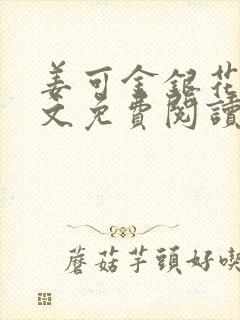 姜可金銀花
文免費閱讀
蘑菇芋頭好喫